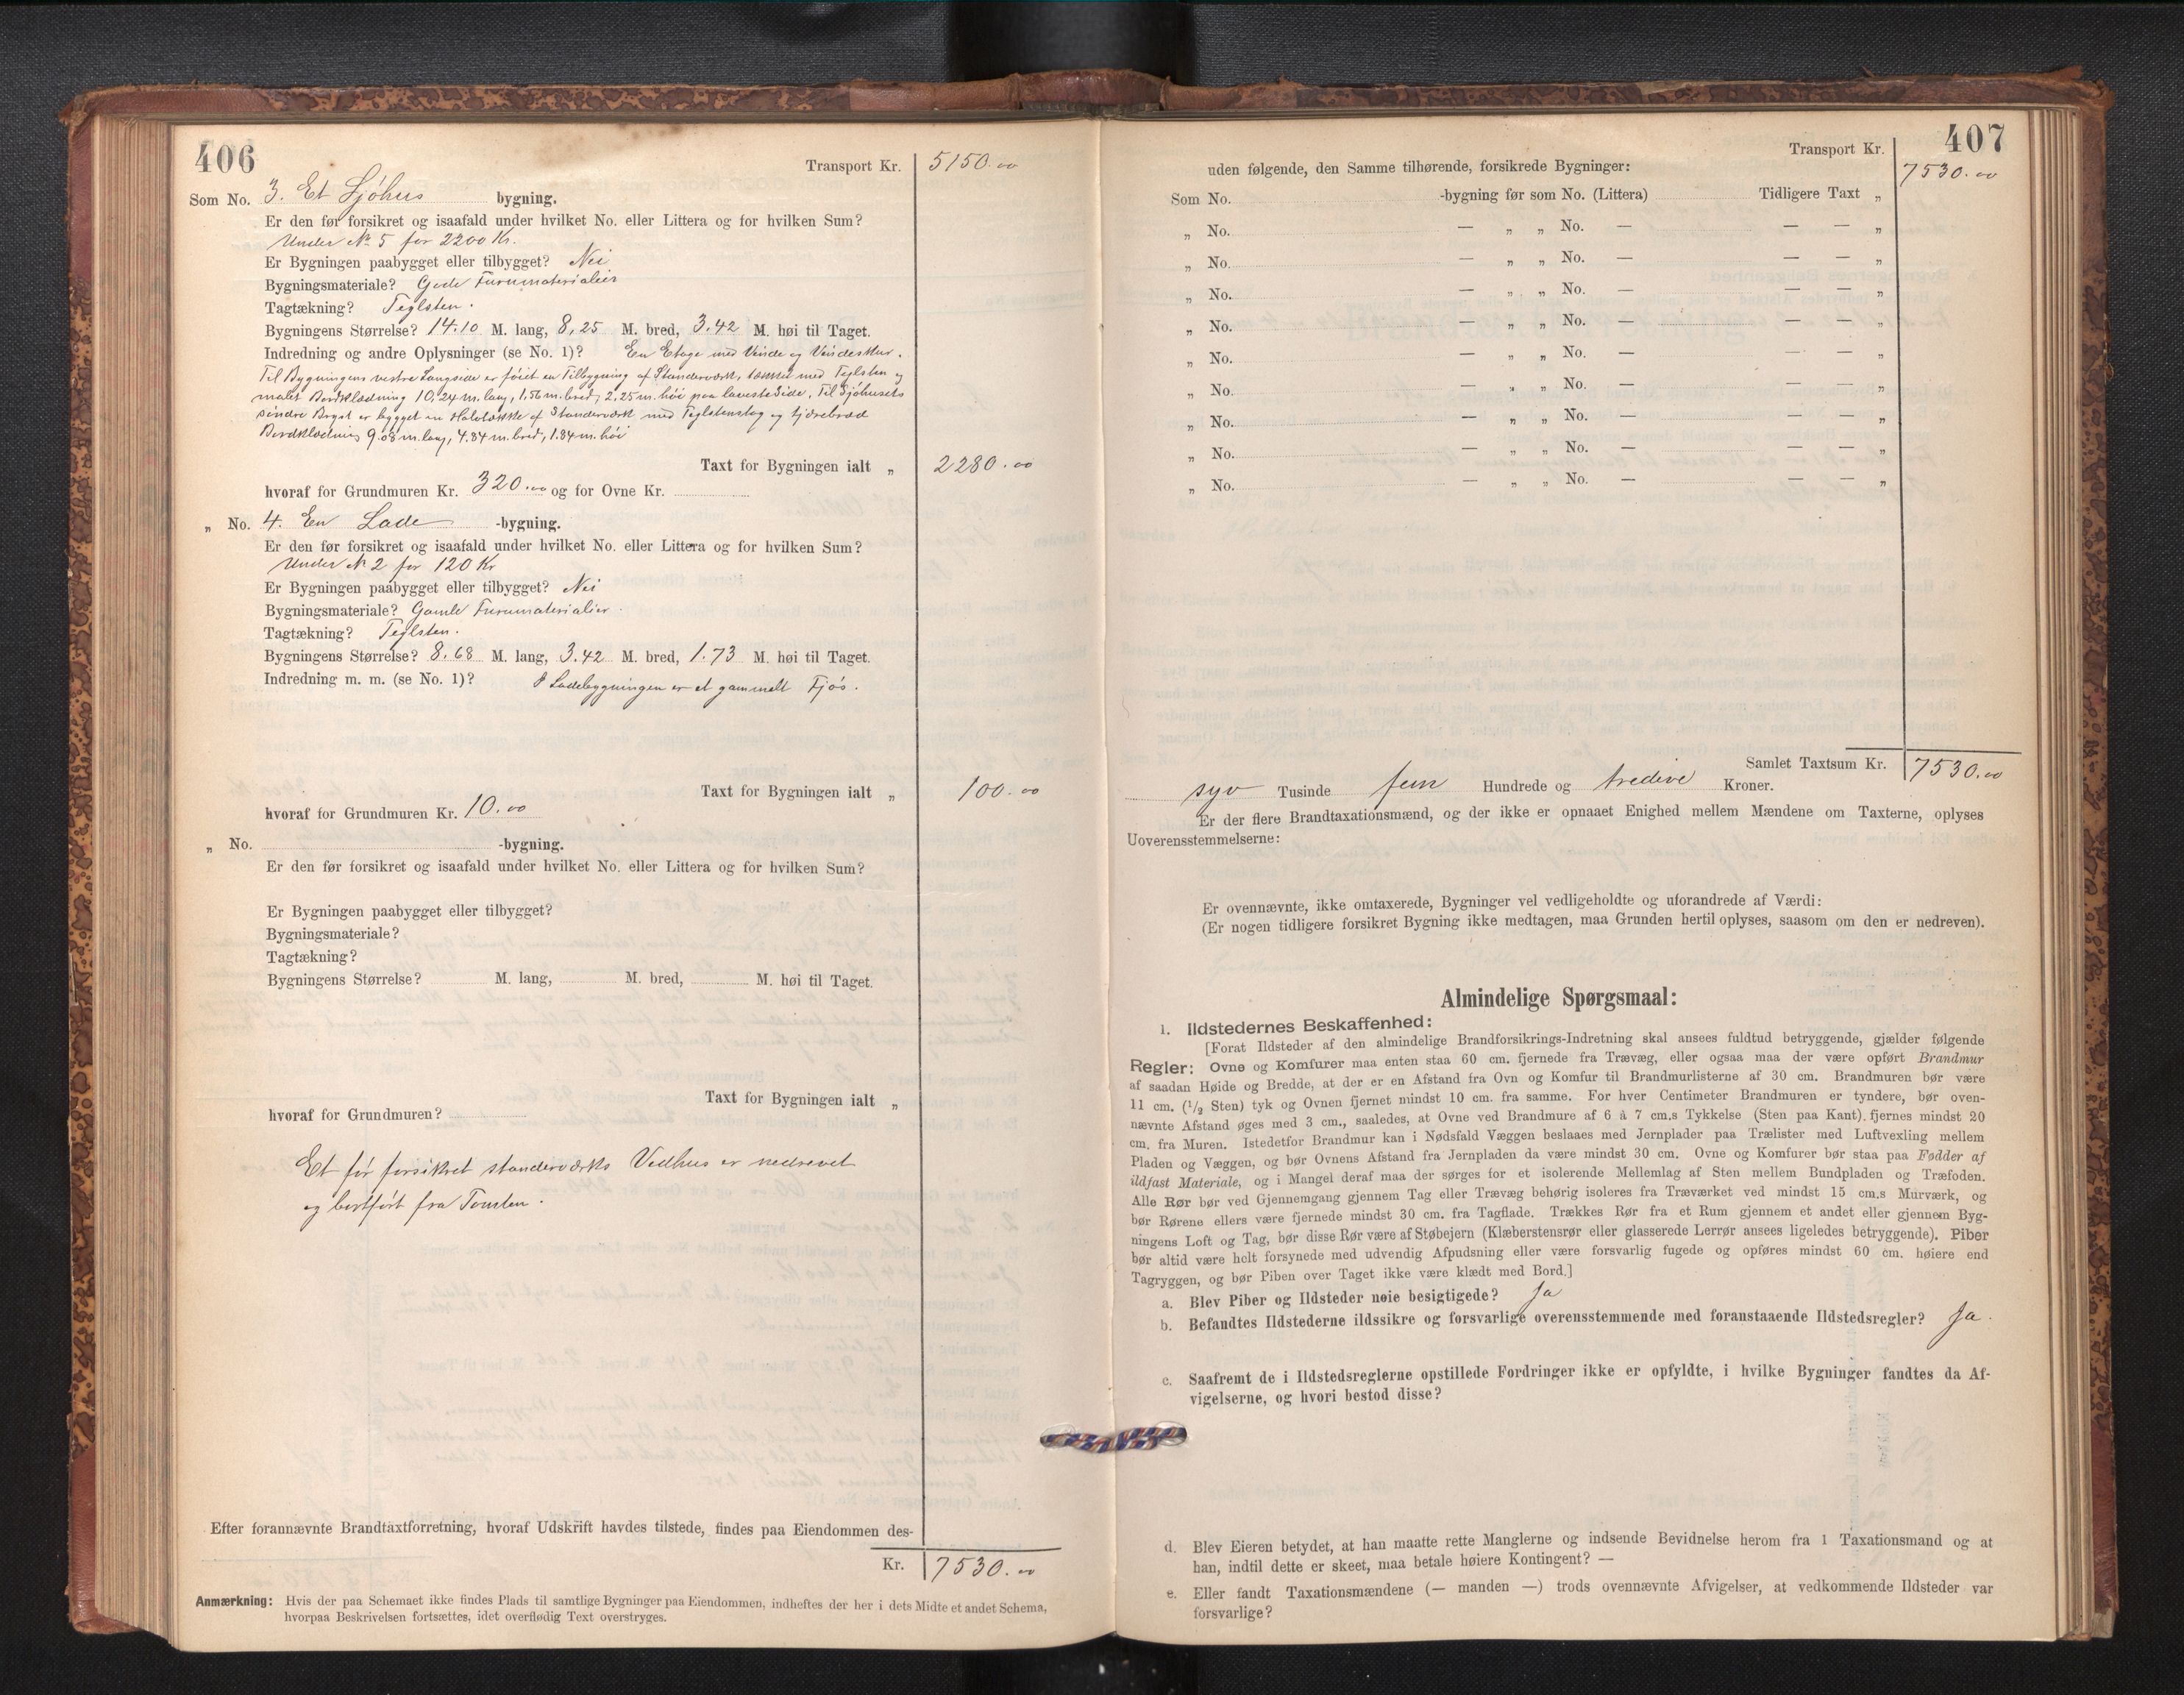 406
Transport Kr. 5150.00
Som No. 3. Et Sjöhus bygning.
Er den før forsikret og isaafald under hvilket No. eller Littera og for hvilken Sum?
Under No 5 for 2200 Kr.
Er Bygningen paabygget eller tilbygget? Nei
Bygningsmateriale? Gode Furumaterialier
Tagtækning? Teglsten.
Bygningens Størrelse? 14.10 M. lang, 8,25 M. bred, 3.42 M. høi til Taget.
Indredning og andre Oplysninger (se No. 1)? En Etage med Vinde og Vindeskur.
Til Bygningens vestre Langside er föiet en Tilbygning af Standerværk, tækket med Teglsten og
malet Bordklædning 10,24 m. lang, 1,56 m. bred, 2,25 m. höi paa laveste Side. Til Sjöhusets
söndre Bryst er bygget en Halvtække af Standerværk med Teglstenstag og tjörebræd
Bordklædning 9.08 m. lang, 4.84 m. bred, 1.84 m. höi
Taxt for Bygningen ialt „ 2280.00
hvoraf for Grundmuren Kr. 320.00 og for Ovne Kr.
„ No. 4. En Lade -bygning.
Er den før forsikret og isaafald under hvilket No. eller Littera og for hvilken Sum?
Under No 2 for 120 Kr
Er Bygningen paabygget eller tilbygget? Nei
Bygningsmateriale? Gamle Furumaterialier.
Tagtækning? Teglsten.
Bygningens Størrelse? 8.68 M. lang, 3.42 M. bred, 1.73 M. høi til Taget.
Indredning m. m. (se No. 1)? I Ladebygningen er et gammelt Fjös.
Taxt for Bygningen ialt „ 100.00
hvoraf for Grundmuren Kr. 10.00
„ No. -bygning.
Er den før forsikret og isaafald under hvilket No. eller Littera og for hvilken Sum?
Er Bygningen paabygget eller tilbygget?
Bygningsmateriale?
Tagtækning?
Bygningens Størrelse? M. lang, M. bred, M. høi til Taget.
Taxt for Bygningen ialt „
hvoraf for Grundmuren?
Et för forsikret standerværks Vedhus er nedrevet
og bortfört fra Tomten.
Efter forannævnte Brandtaxtforretning, hvoraf Udskrift havdes tilstede, findes paa Eiendommen des-
Kr. 7530.00
Anmærkning: Hvis der paa Schemaet ikke findes Plads til samtlige Bygninger paa Eiendommen, indheftes der her i dets Midte et andet Schema,
hvorpaa Beskrivelsen fortsættes, idet overflødig Text overstryges.
407
Transport Kr. 7530.00
uden følgende, den Samme tilhørende, forsikrede Bygninger:
Som No. -bygning før som No. (Littera) Tidligere Taxt „
„ No. — „ „ No. — — — „
„ No. — „ „ No. — — — „
„ No. — „ „ No. — — — „
„ No. — „ „ No. — — — „
„ No. — „ „ No. — — — „
„ No. — „ „ No. — — — „
„ No. — „ „ No. — — — „
„ No. — „ „ No. — — — „
„ No. — „ „ No. — — — „
Samlet Taxtsum Kr. 7530.00
syv Tusinde fem Hundrede og tredive Kroner.
Er der flere Brandtaxationsmænd, og der ikke er opnaaet Enighed mellem Mændene om Taxterne, oplyses
Uoverensstemmelserne:
Er ovennævnte, ikke omtaxerede, Bygninger vel vedligeholdte og uforandrede af Værdi:
(Er nogen tidligere forsikret Bygning ikke medtagen, maa Grunden hertil oplyses, saasom om den er nedreven).
Almindelige Spørgsmaal:
1. Ildstedernes Beskaffenhed:
[Forat Ildsteder af den almindelige Brandforsikrings-Indretning skal ansees fuldtud betryggende, gjælder følgende
Regler: Ovne og Komfurer maa enten staa 60 cm. fjernede fra Trævæg, eller ogsaa maa der være opført Brandmur
af saadan Høide og Bredde, at der er en Afstand fra Ovn og Komfur til Brandmurlisterne af 30 cm. Brandmuren bør være
11 cm. (1/2 Sten) tyk og Ovnen fjernet mindst 10 cm. fra samme. For hver Centimeter Brandmuren er tyndere, bør oven-
nævnte Afstand øges med 3 cm., saaledes, at Ovne ved Brandmure af 6 à 7 cm.s Tykkelse (Sten paa Kant). fjernes mindst 20
cm. fra Muren. Istedetfor Brandmur kan i Nødsfald Væggen beslaaes med Jernplader paa Trælister med Luftvexling mellem
Pladen og Væggen, og bør Ovnens Afstand fra Jernpladen da være mindst 30 cm. Ovne og Komfurer bør staa paa Fødder af
ildfast Materiale, og i Mangel deraf maa der sørges for et isolerende Mellemlag af Sten mellem Bundpladen og Træfoden.
Alle Rør bør ved Gjennemgang gjennem Tag eller Trævæg behørig isoleres fra Træværket ved mindst 15 cm.s Murværk, og
bør Rørene ellers være fjernede mindst 30 cm. fra Tagflade. Trækkes Rør fra et Rum gjennem et andet eller gjennem Byg-
ningens Loft og Tag, bør disse Rør være af Støbejern (Klæberstensrør eller glasserede Lerrør ansees ligeledes betryggende). Piber
bør altid være helt forsynede med udvendig Afpudsning eller være forsvarlig fugede og opføres mindst 60 cm. høiere end
Tagryggen, og bør Piben over Taget ikke være klædt med Bord.]
a. Blev Piber og Ildsteder nøie besigtigede? Ja
b. Befandtes Ildstederne ildssikre og forsvarlige overensstemmende med foranstaaende Ildstedsregler? Ja.
c. Saafremt de i Ildstedsreglerne opstillede Fordringer ikke er opfyldte, i hvilke Bygninger fandtes da Af-
vigelserne, og hvori bestod disse?
d. Blev Eieren betydet, at han maatte rette Manglerne og indsende Bevidnelse herom fra 1 Taxationsmand og at
han, indtil dette er skeet, maa betale høiere Kontingent? —
e. Eller fandt Taxationsmændene (— manden —) trods ovennævnte Afvigelser, at vedkommende Ildsteder var
forsvarlige?